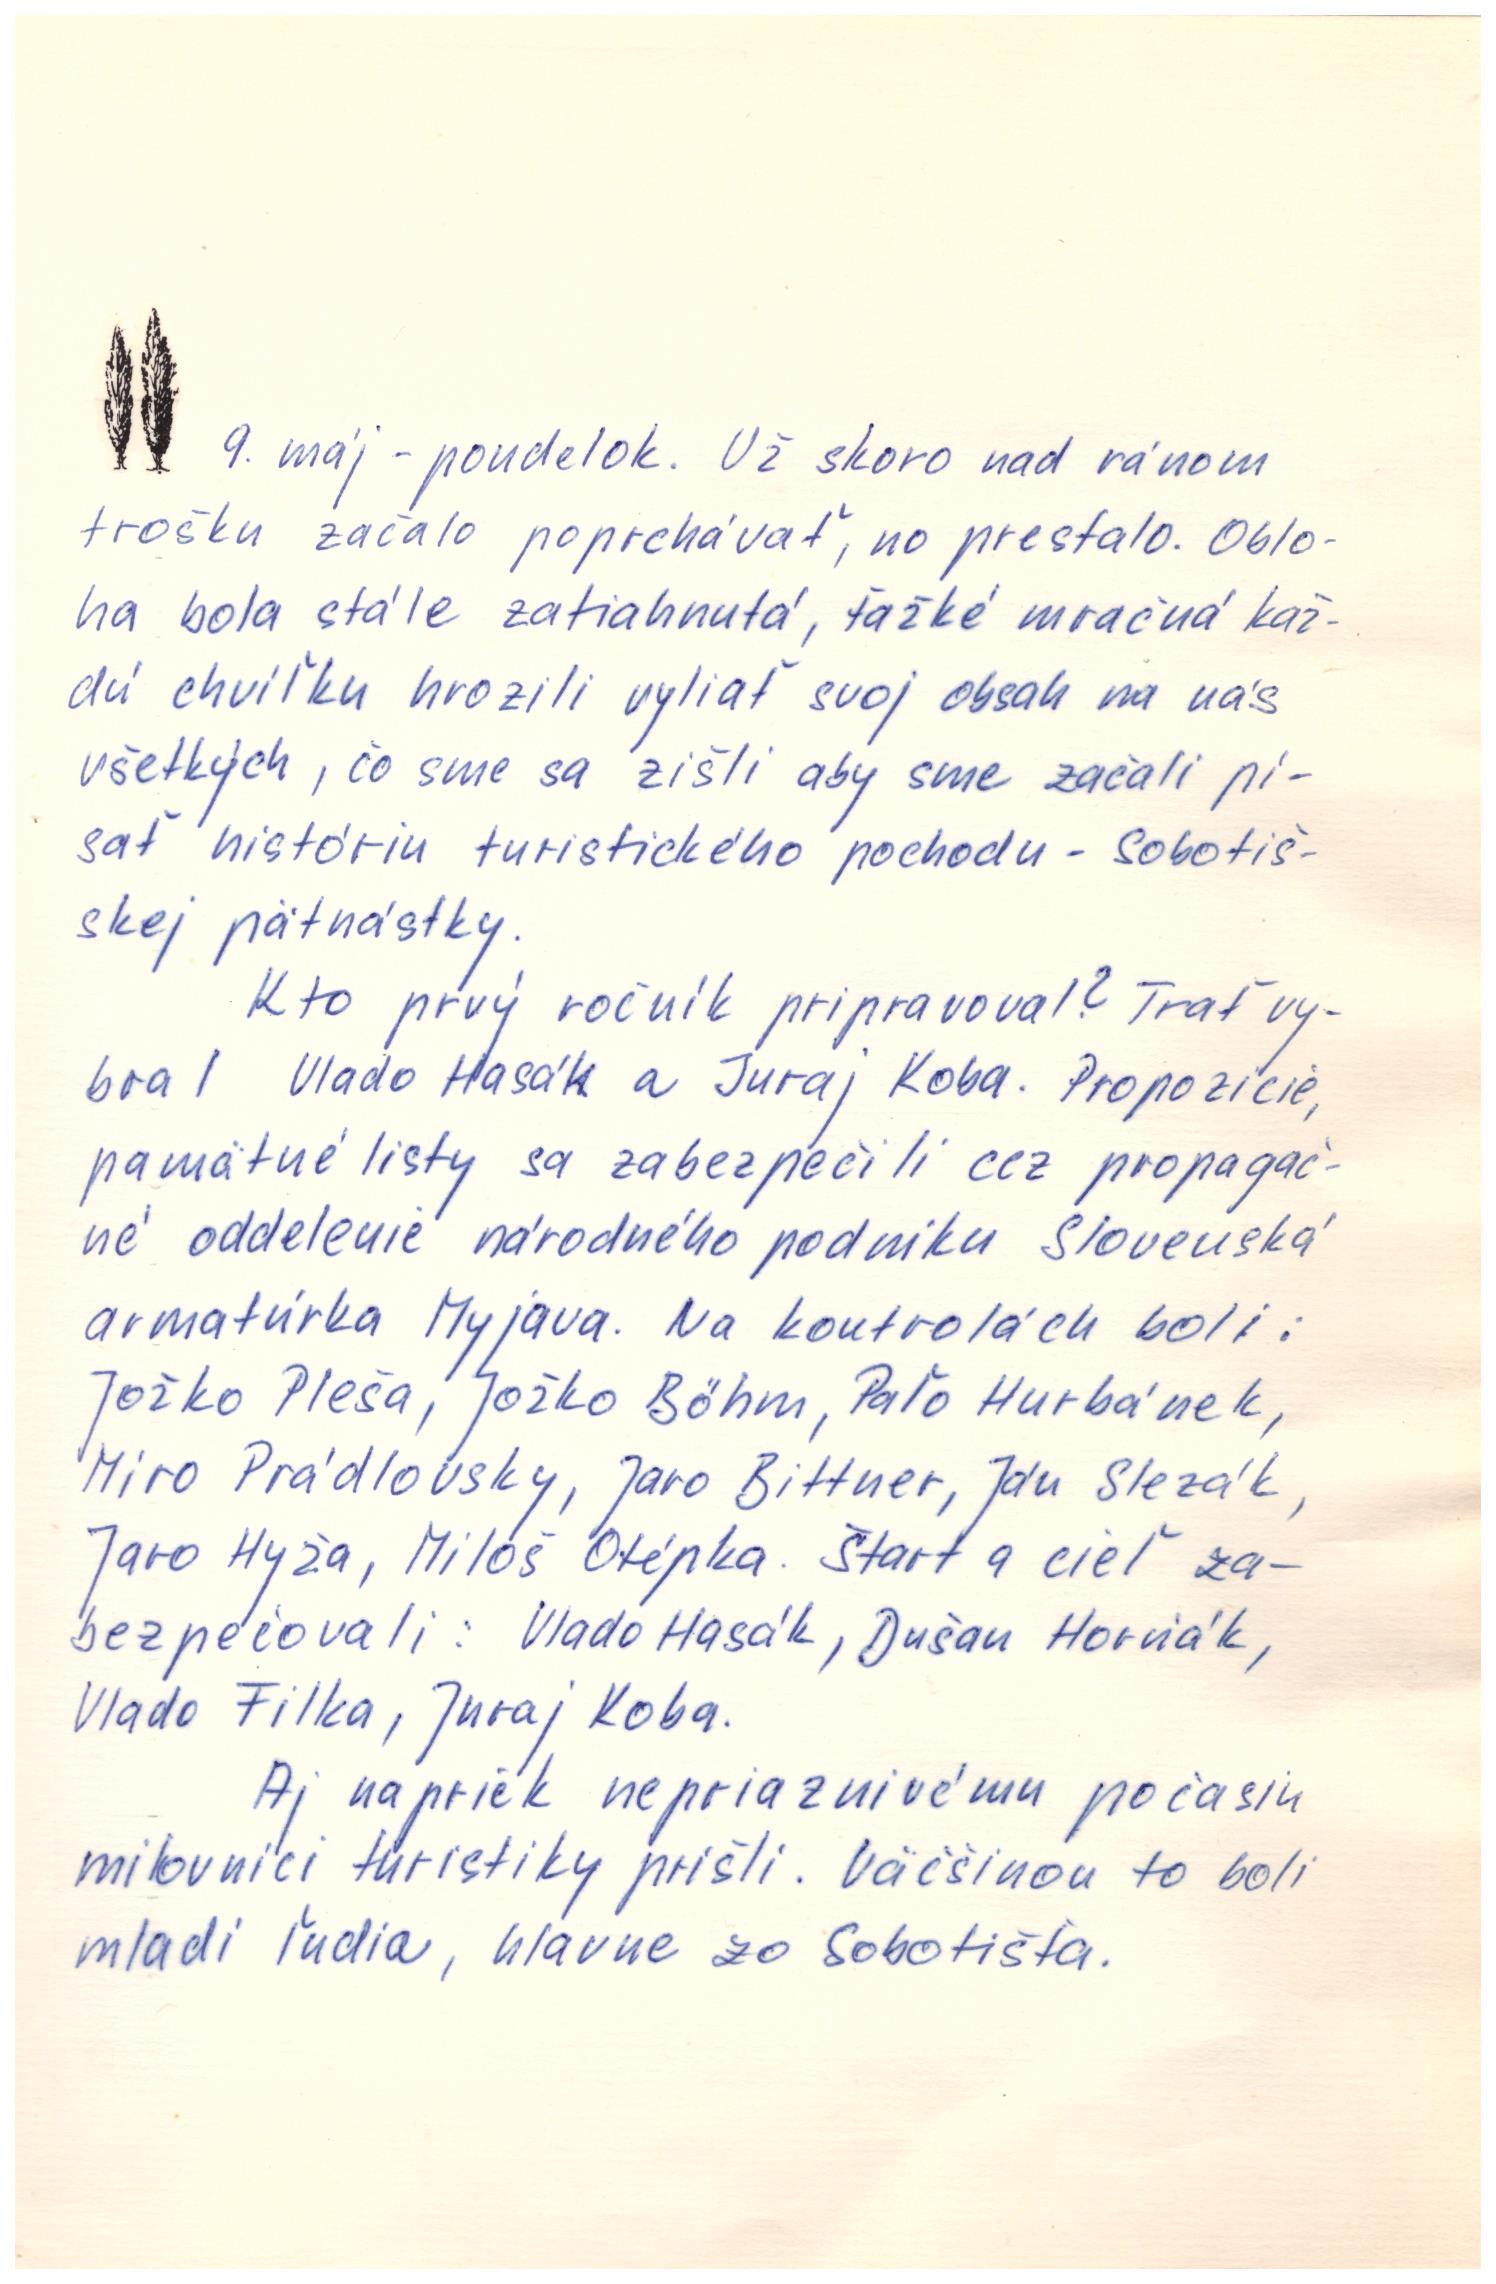 9. máj - pondelok. Už skoro nad ránom
trošku začalo poprchávať, no prestalo. Oblo-
ha bola stále zatiahnutá, ťažké mračná kaž-
dú chvíľku hrozili vyliať svoj obsah na nás
všetkých, čo sme sa zišli aby sme začali pí-
sať históriu turistického pochodu - Sobotiš-
skej pätnástky.
Kto prvý ročník pripravoval? Trať vy-
bral Vlado Hasák a Juraj Koba. Propozície,
pamätné listy sa zabezpečili cez propagač-
né oddelenie národného podniku Slovenská
armatúrka Myjava. Na kontrolách boli:
Jožko Pleša, Jožko Böhm, Paľo Hurbánek,
Miro Prádlovsky, Jaro Bittner, Ján Slezák,
Jaro Hyža, Miloš Otépka. Štart a cieľ za-
bezpečovali: Vlado Hasák, Dušan Horňák,
Vlado Filka, Juraj Koba.
Aj napriek nepriaznivému počasiu
milovníci turistiky prišli. Väčšinou to boli
mladí ľudia, hlavne zo Sobotišťa.